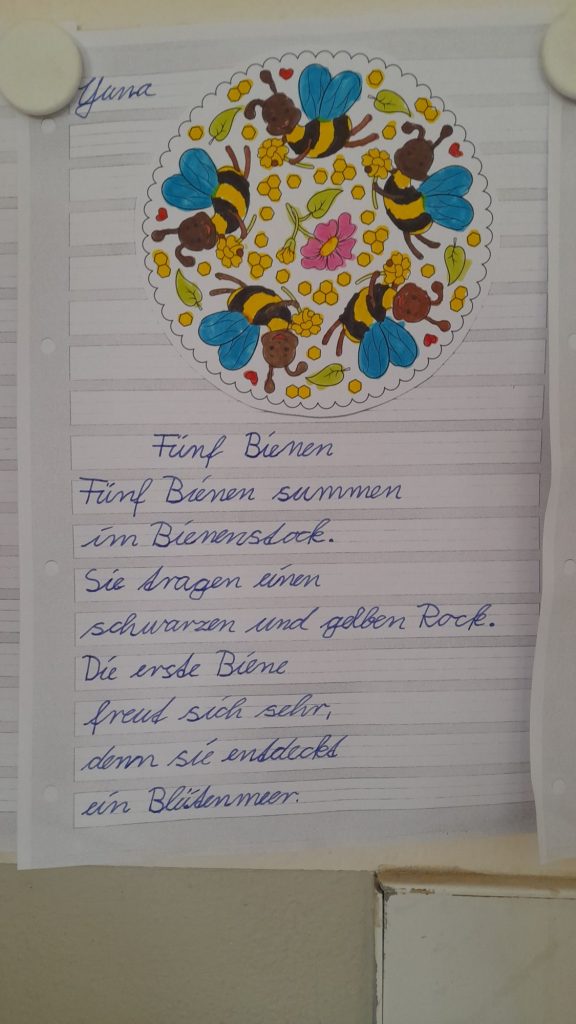 Yuna
Fünf Bienen
Fünf Bienen summen
im Bienenstock.
Sie tragen einen
schwarzen und gelben Rock.
Die erste Biene
freut sich sehr,
denn sie entdeckt
ein Blütenmeer.